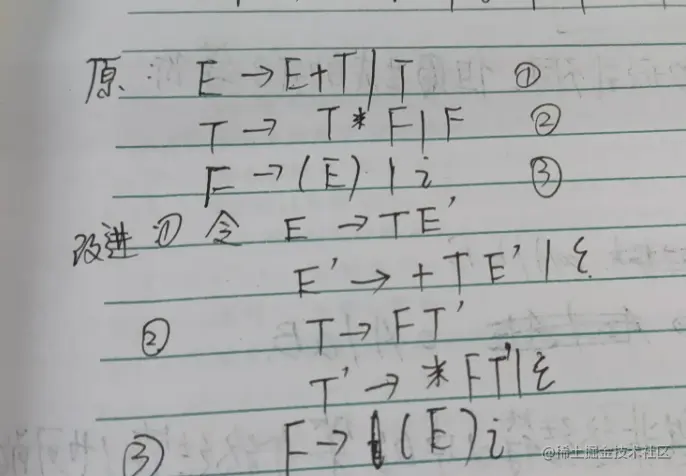 原: E → E+T | T ①
T → T * F | F ②
F → (E) | i ③
改进 ① 令 E → TE'
E' → + T E' | ε
② T → FT'
T' → * FT' | ε
③ F → (E) i
@稀土掘金技术社区